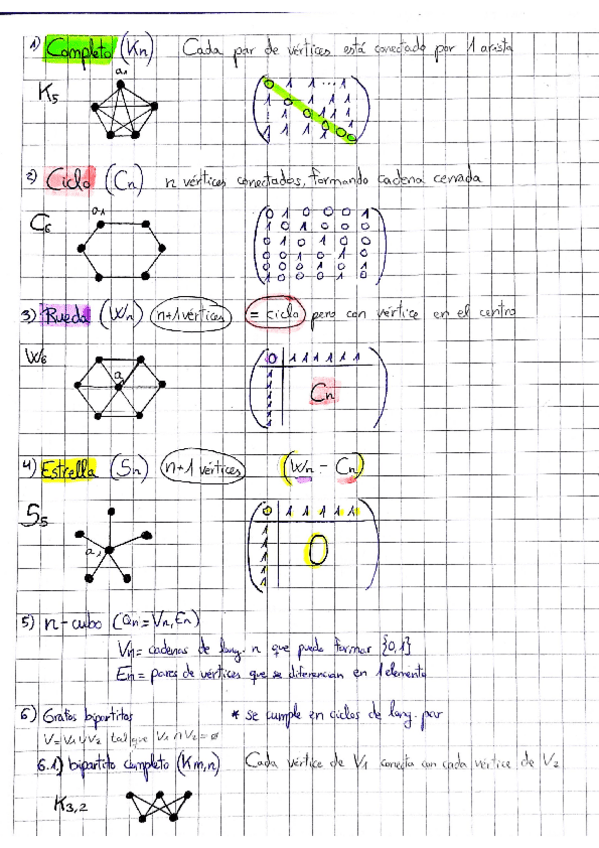 1) Completo (Kn) Cada par de vértices está conectado por 1 arista
a1
K5
0 1 1 ... 1
1 0 1 1 1
1 1 0 1 1
1 1 1 0 1
0
2) Ciclo (Cn) n vértices conectados, formando cadena cerrada
a1
C6
0 1 0 0 0 1
1 0 1 0 0 0
0 1 0 1 0 0
0 0 1 0 1 0
0 0 0 1 0 1
1 0 0 0 1 0
3) Rueda (Wn) (n+1 vértices) (= ciclo) pero con vértice en el centro
W6
a1
0 1 1 1 1 1 1
1
1
1
1
1
1
Cn
4) Estrella (Sn) (n+1 vértices) (Wn - Cn)
S5
a1
0 1 1 1 1 1
1
1
1
1
1
0
5) n-cubo (Qn = Vn, En)
Vn = cadenas de long. n que puedo formar {0,1}
En = pares de vértices que se diferencian en 1 elemento
6) Grafos bipartitos * se cumple en ciclos de long. par
V = V1 ∪ V2 tal que V1 ∩ V2 = ø
6.1) bipartito completo (Km,n) Cada vértice de V1 conecta con cada vértice de V2
K3,2